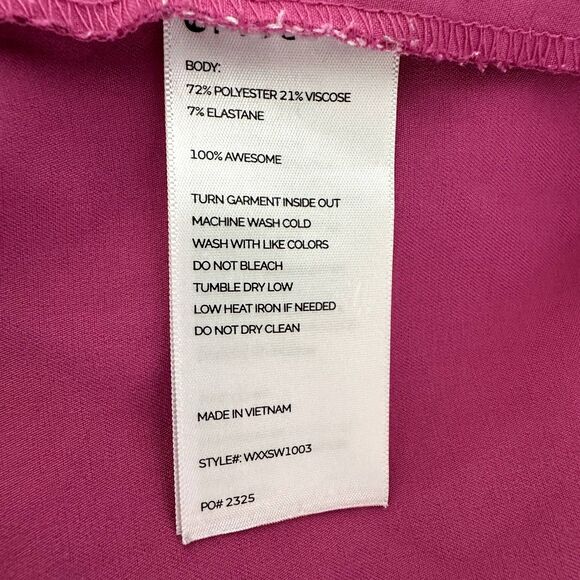 BODY:
72% POLYESTER 21% VISCOSE
7% ELASTANE
100% AWESOME
TURN GARMENT INSIDE OUT
MACHINE WASH COLD
WASH WITH LIKE COLORS
DO NOT BLEACH
TUMBLE DRY LOW
LOW HEAT IRON IF NEEDED
DO NOT DRY CLEAN
MADE IN VIETNAM
STYLE#: WXXSW1003
PO# 2325